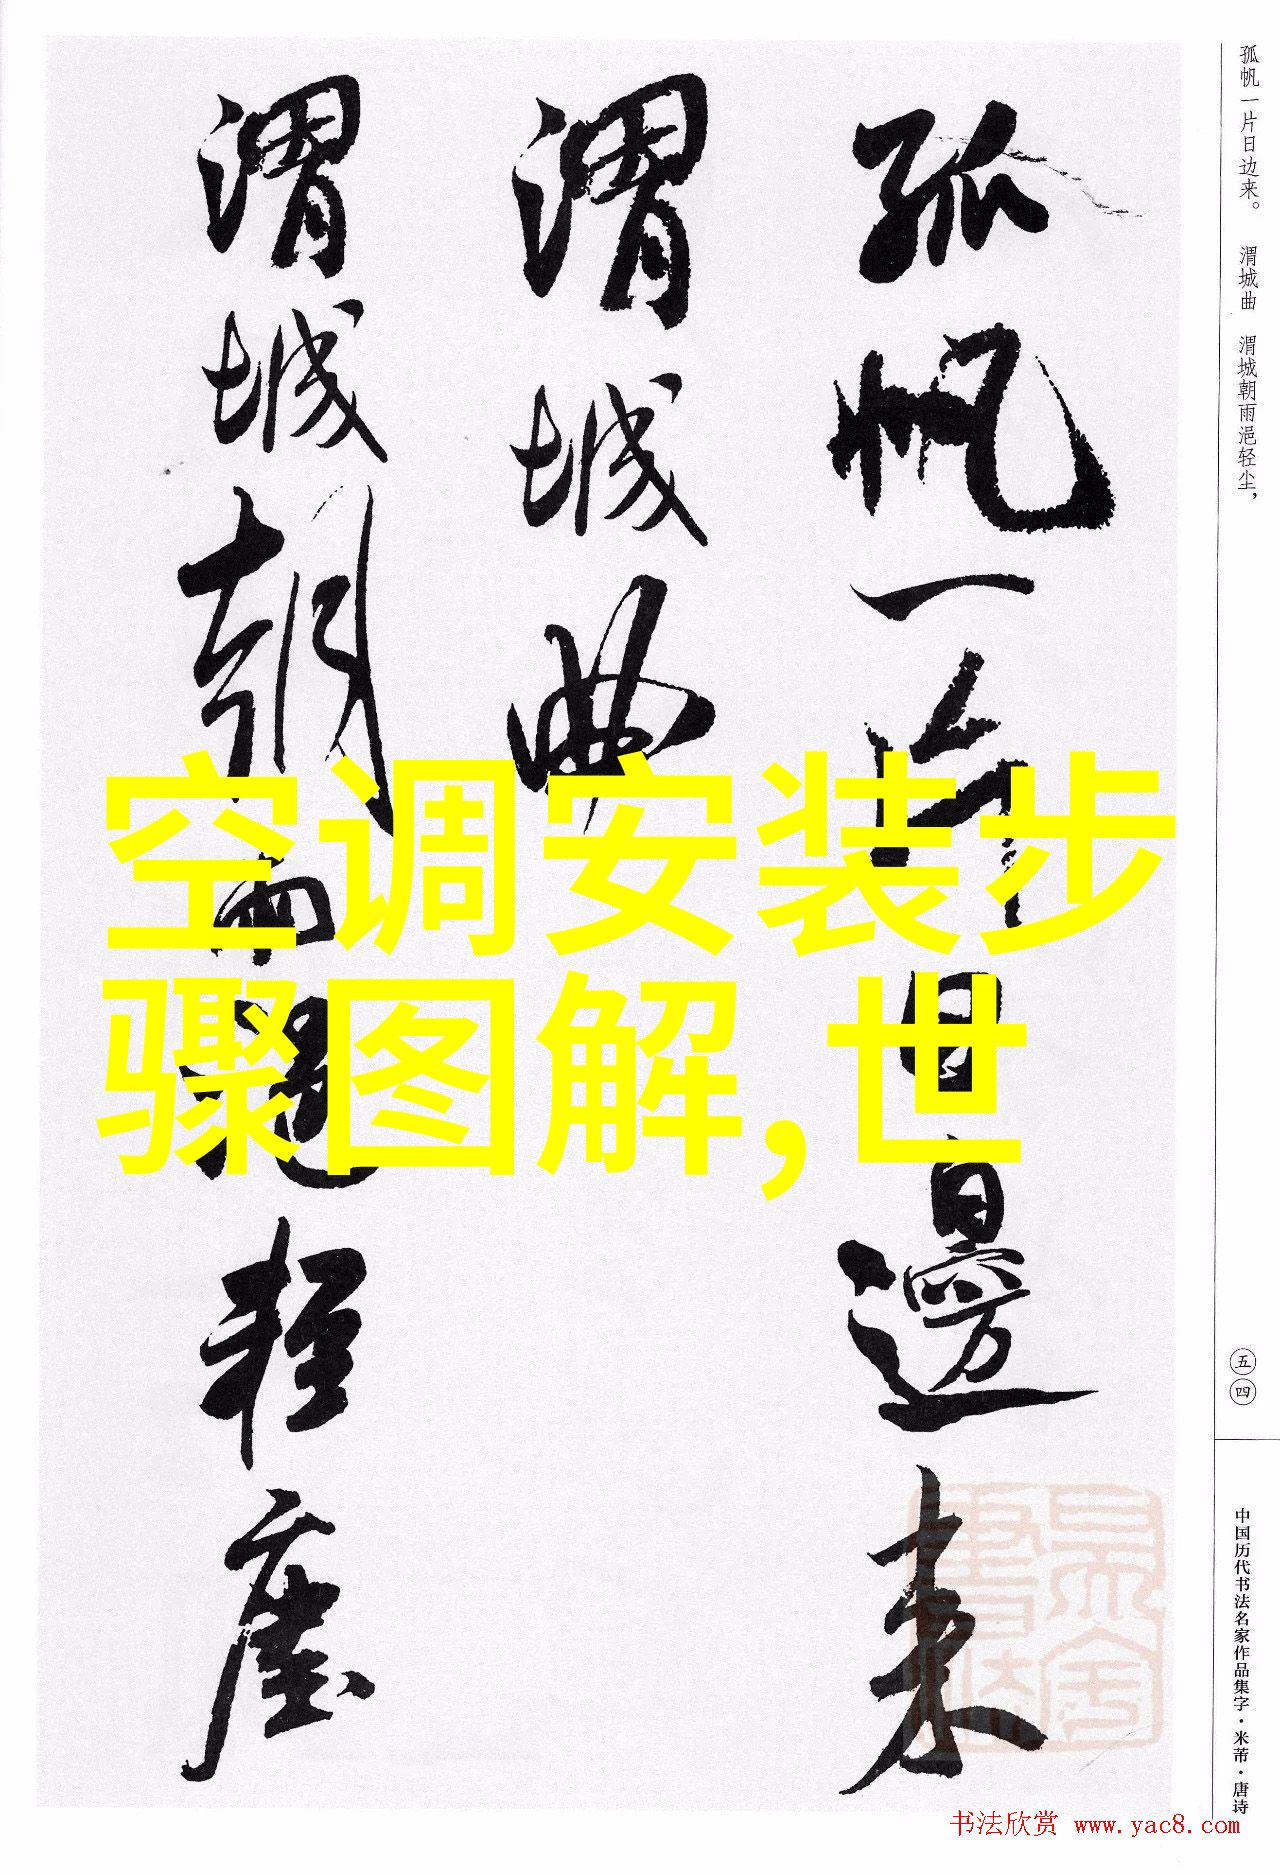 孤帆一片日边来。 渭城曲 渭城朝雨浥轻尘，
孤帆一片日邊来
渭城曲
渭城朝雨浥轻塵
空调安装步
骤图解,世
五四
中国历代书法名家作品集字·米芾·唐诗
书法欣赏 www.yac8.com